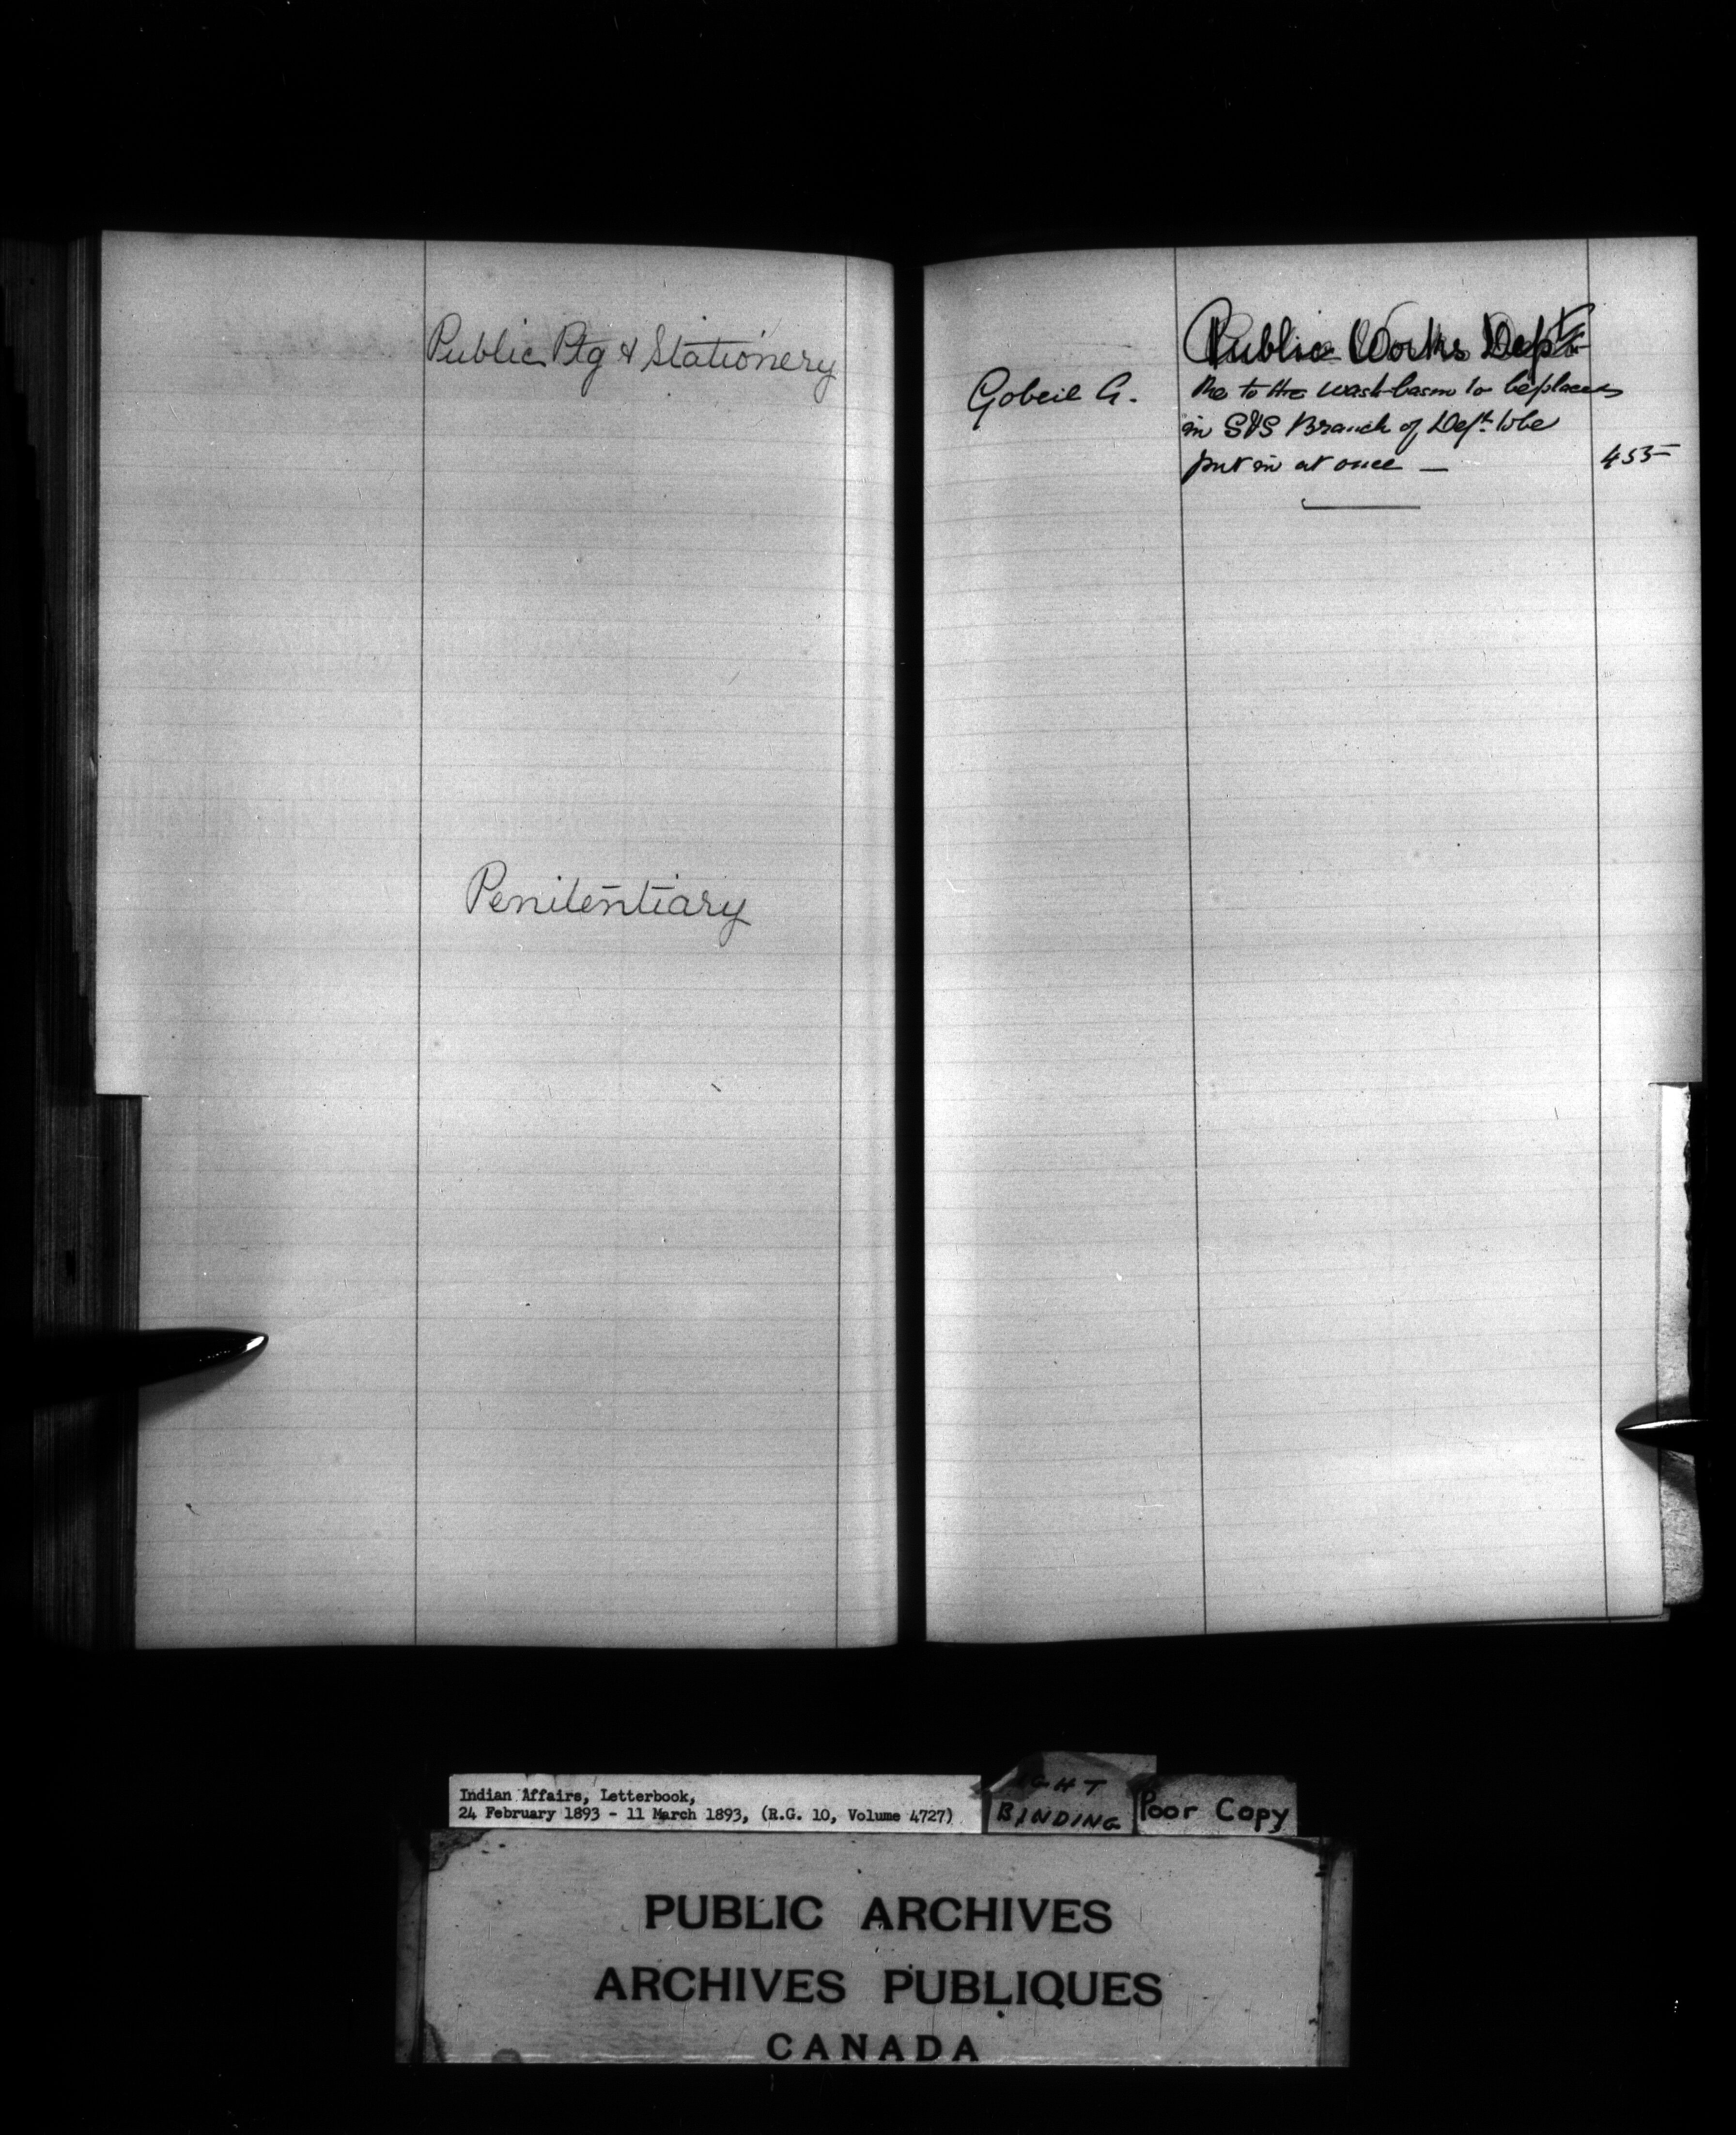 Public Ptg & Stationery
Penitentiary
Public Works Dept
Gobeil A.
Re to the wash-basin to be placed
in S&S Branch of Dept. to be
put in at once —
455
Indian Affairs, Letterbook,
24 February 1893 - 11 March 1893, (R.G. 10, Volume 4727)
BINDING
Poor Copy
PUBLIC ARCHIVES
ARCHIVES PUBLIQUES
CANADA